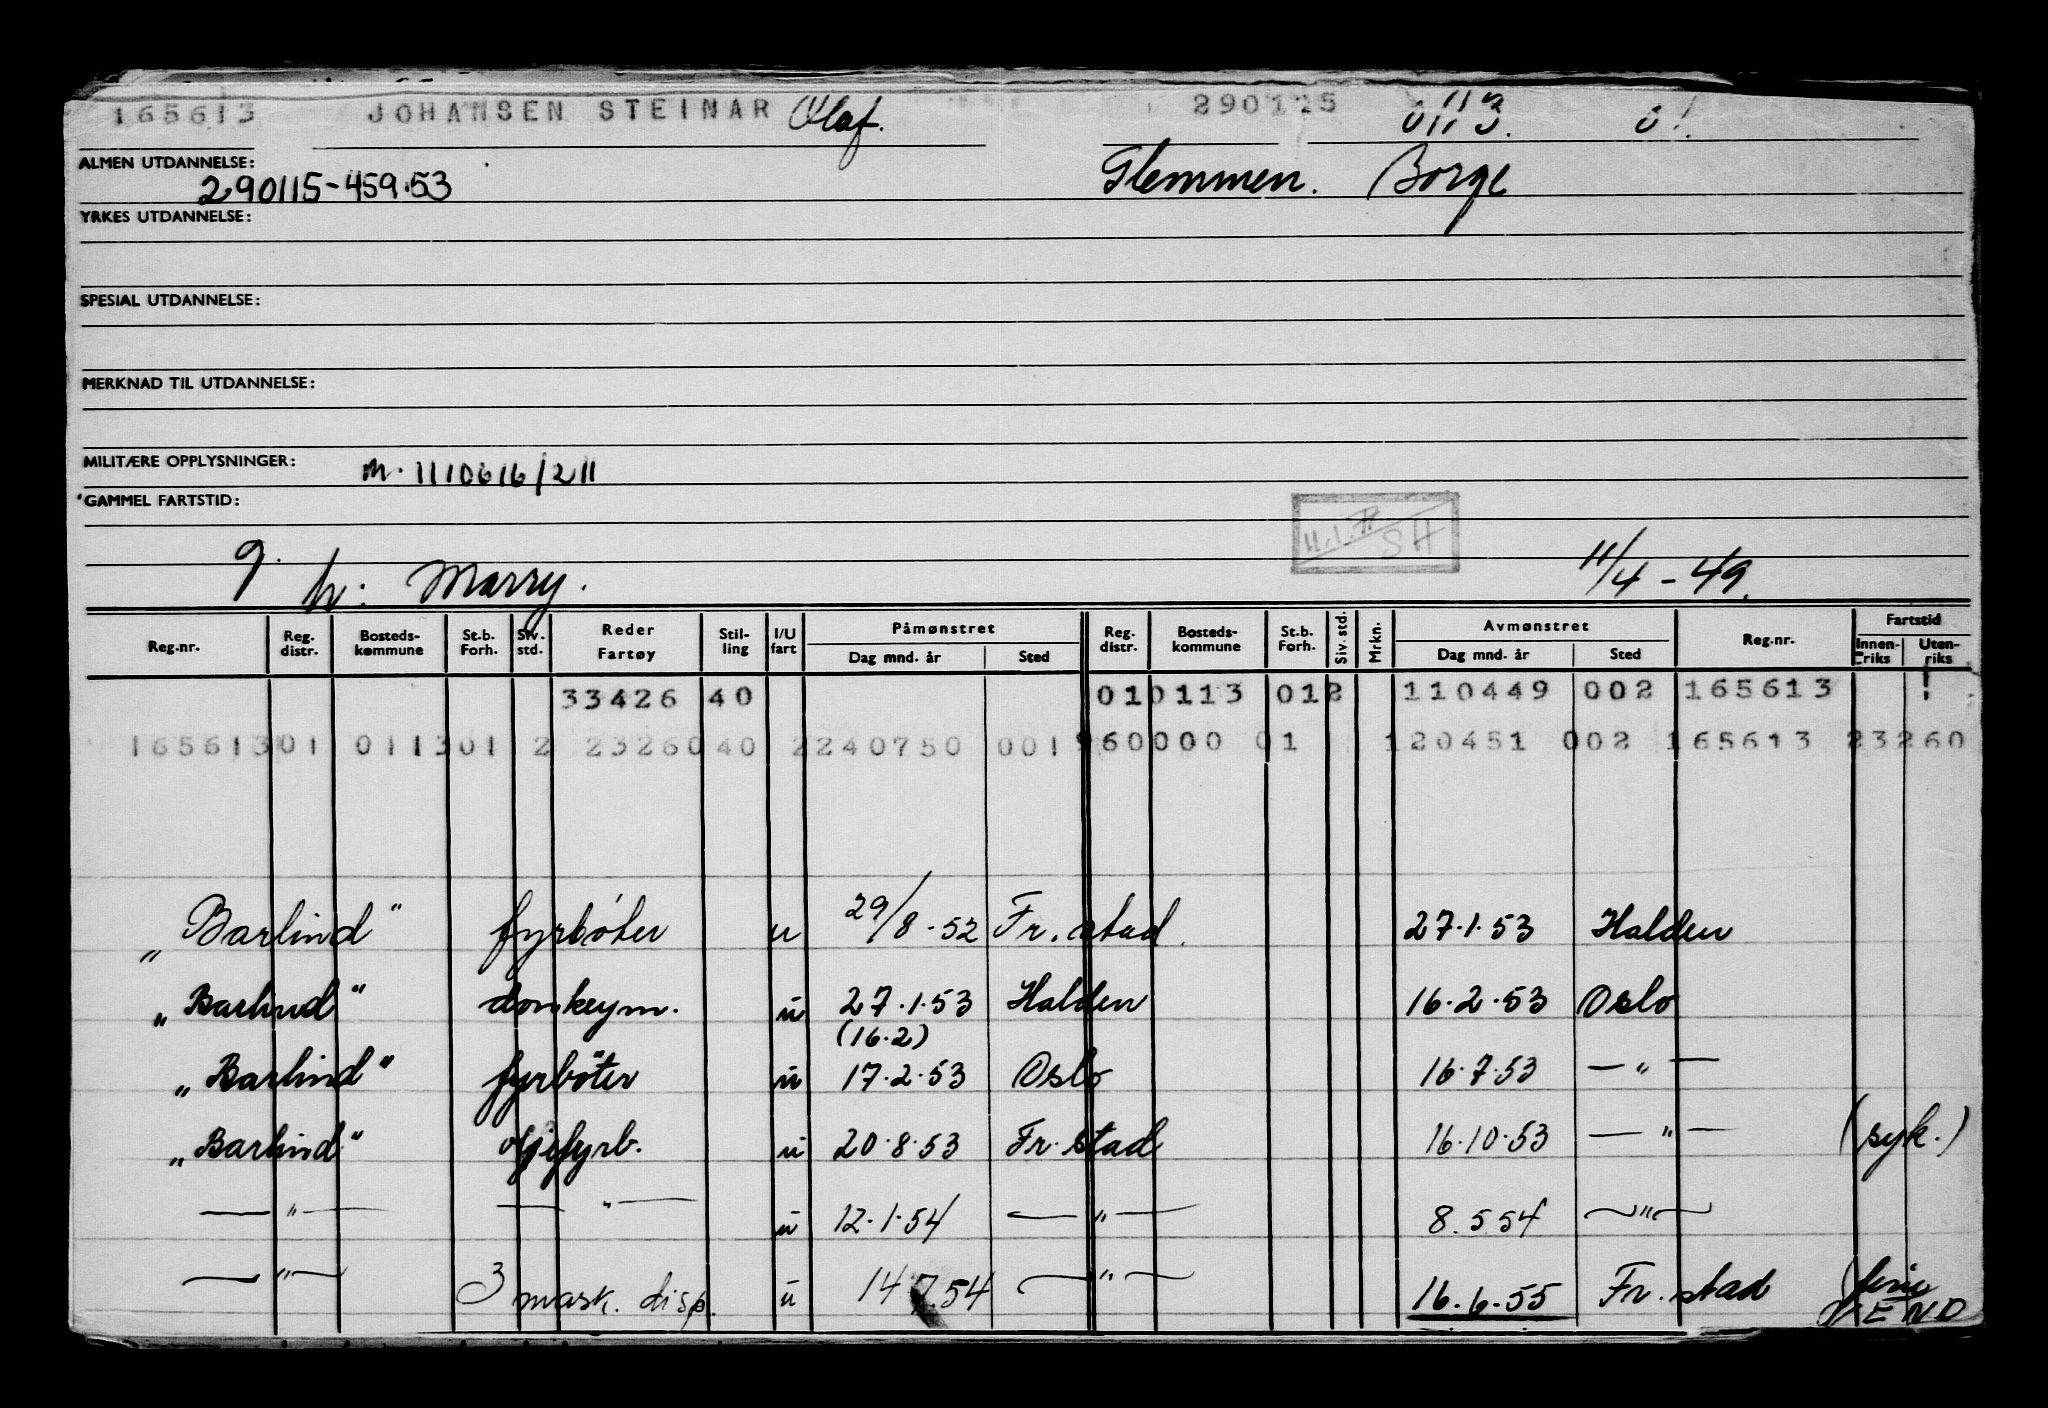 165613 JOHANSEN STEINAR Olaf. 290115 0113. 01.
ALMEN UTDANNELSE: Glemmen. Borge
290115-459.53
YRKES UTDANNELSE:
SPESIAL UTDANNELSE:
MERKNAD TIL UTDANNELSE:
MILITÆRE OPPLYSNINGER: m. 1110616/211
GAMMEL FARTSTID:
g. h: Marry. 11/4-49.
Reg.nr. Reg. distr. Bosteds- kommune St.b. Forh. Siv. std. Reder Fartøy Stil- ling I/U fart Påmønstret Dag mnd. år Sted Reg. distr. Bosteds- kommune St.b. Forh. Siv. std. Mrkn. Avmønstret Dag mnd. år Sted Reg.nr. Fartstid Innen- riks Uten- riks
33426 40 010113 012 110449 002 165613
165613 01 0113 01 2 23260 40 2 240750 001 960000 01 120451 002 165613 23260
„Barlind" fyrbøter u 29/8-52 Fr.stad. 27.1.53 Halden
„Barlind" donkeym. u 27.1.53 Halden 16.2.53 Oslo
(16.2)
„Barlind" fyrbøter u 17.2.53 Oslo 16.7.53 — " —
„Barlind" oljefyrb. u 20.8.53 Fr.stad 16.10.53 — " — (syk.)
— " — — " — u 12.1.54 — " — 8.5.54 — " —
— " — 3 mask. disp. u 14.7.54 — " — 16.6.55 Fr.stad